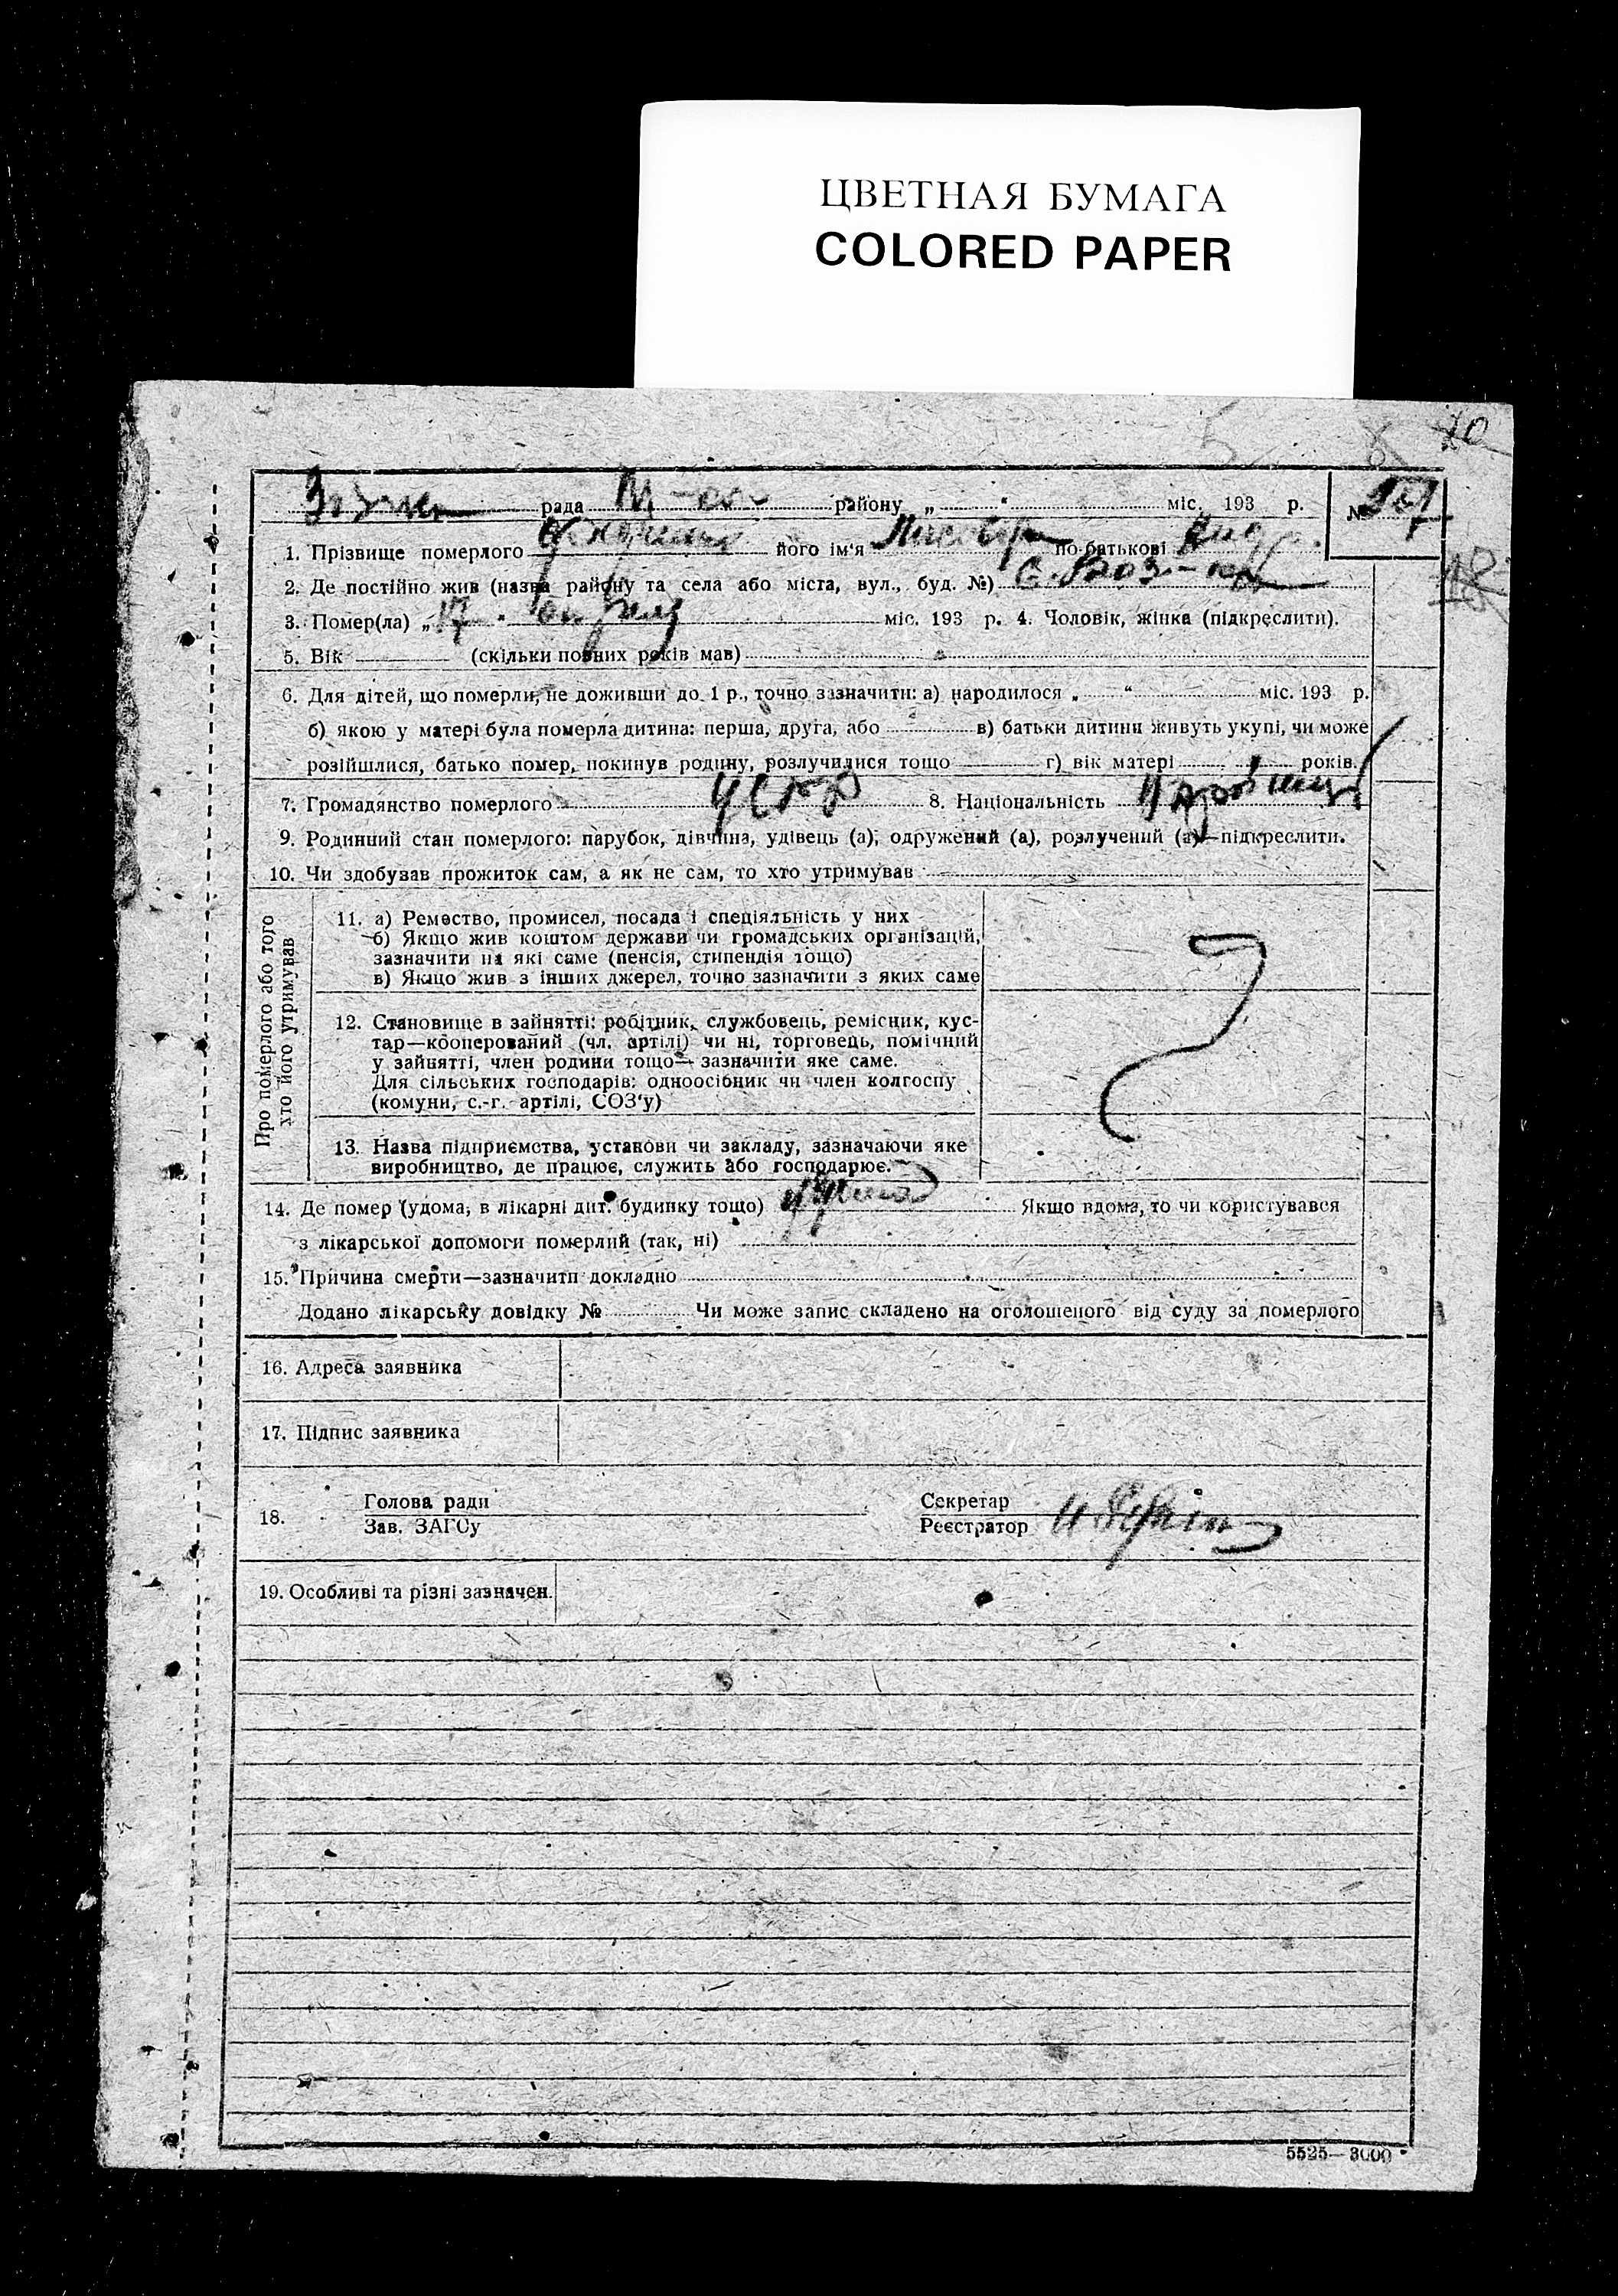 ЦВЕТНАЯ БУМАГА
COLORED PAPER
рада району „ “ міс. 193 р. №
1. Прізвище померлого його ім'я по батькові
2. Де постійно жив (назва району та села або міста, вул., буд. №)
3. Помер(ла) „17“ апреля міс. 193 р. 4. Чоловік, жінка (підкреслити).
5. Вік (скільки повних років мав)
6. Для дітей, що померли, не доживши до 1 р., точно зазначити: а) народилося „ “ міс. 193 р.
б) якою у матері була померла дитина: перша, друга, або в) батьки дитини живуть укупі, чи може
розійшлися, батько помер, покинув родину, розлучилися тощо г) вік матері років.
7. Громадянство померлого УССР 8. Національність
9. Родинний стан померлого: парубок, дівчина, удівець (а), одружений (а), розлучений (а)—підкреслити.
10. Чи здобував прожиток сам, а як не сам, то хто утримував
Про померлого або того
хто його утримував
11. а) Ремество, промисел, посада і спеціяльність у них
б) Якщо жив коштом держави чи громадських організацій,
зазначити на які саме (пенсія, стипендія тощо)
в) Якщо жив з інших джерел, точно зазначити з яких саме
12. Становище в зайнятті: робітник, службовець, ремісник, кус-
тар—кооперований (чл. артілі) чи ні, торговець, помічний
у зайнятті, член родини тощо—зазначити яке саме.
Для сільських господарів: одноосібник чи член колгоспу
(комуни, с.-г. артілі, СОЗ'у)
13. Назва підприємства, установи чи закладу, зазначаючи яке
виробництво, де працює, служить або господарює.
14. Де помер (удома, в лікарні дит. будинку тощо) Якщо вдома, то чи користувався
з лікарської допомоги померлий (так, ні)
15. Причина смерти—зазначити докладно
Додано лікарську довідку № Чи може запис складено на оголошеного від суду за померлого
16. Адреса заявника
17. Підпис заявника
18. Голова ради Секретар
Зав. ЗАГСу Реєстратор
19. Особливі та різні зазначен.
5525—3000